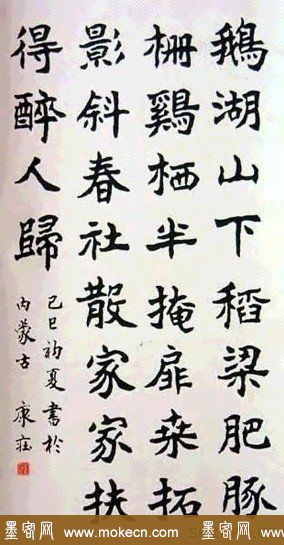 鵝湖山下稻梁肥豚
柵鷄栖半掩扉桒拓
影斜春社散家家扶
得醉人歸
己巳初夏書於
内蒙古 康
墨客网 www.mokecn.com 墨客网